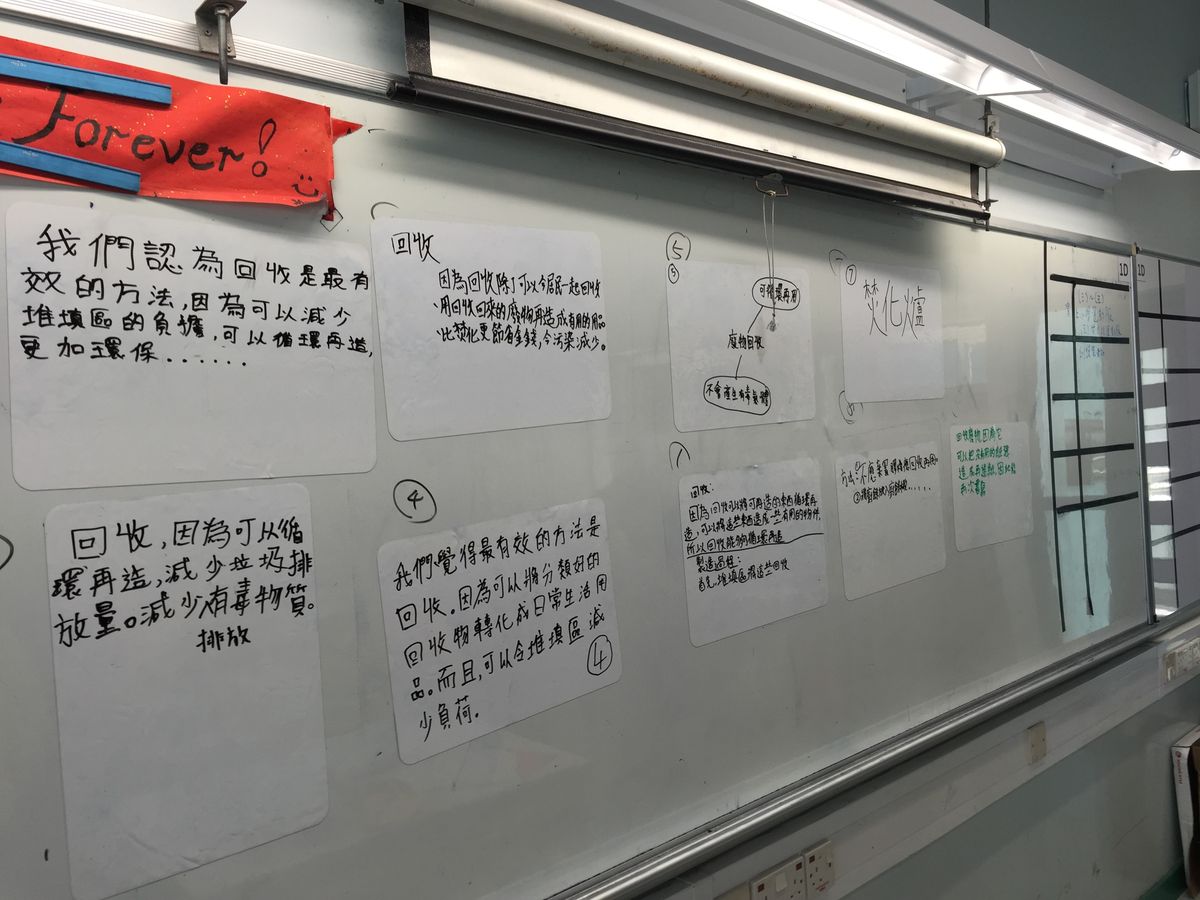 Forever!
我們認為回收是最有
效的方法,因為可以減少
堆填區的負擔,可以循環再造,
更加環保......
回收
因為回收除了可以令居民一起回收
用回收回來的廢物再造成有用的用品
比焚化更節省金錢,令污染減少。
⑤
可循環再用
廢物回收
不會產生有毒氣體
⑦
焚化爐
1D
1D
回收,因為可以循
環再造,減少垃圾排
放量。減少有毒物質。
排放
④
我們覺得最有效的方法是
回收。因為可以將分類好的
回收物轉化成日常生活用
品。而且,可以令堆填區減
少負荷。
④
回收:
因為回收可以將可再造的東西循環再
造,可以將這些東西造成一些有用的物件,
所以回收能夠循環再造
製造過程:
首先,堆填區將這些回收
回收廢物,因為它
可以把沒有用的紙張
造成再造紙,因此能
再次